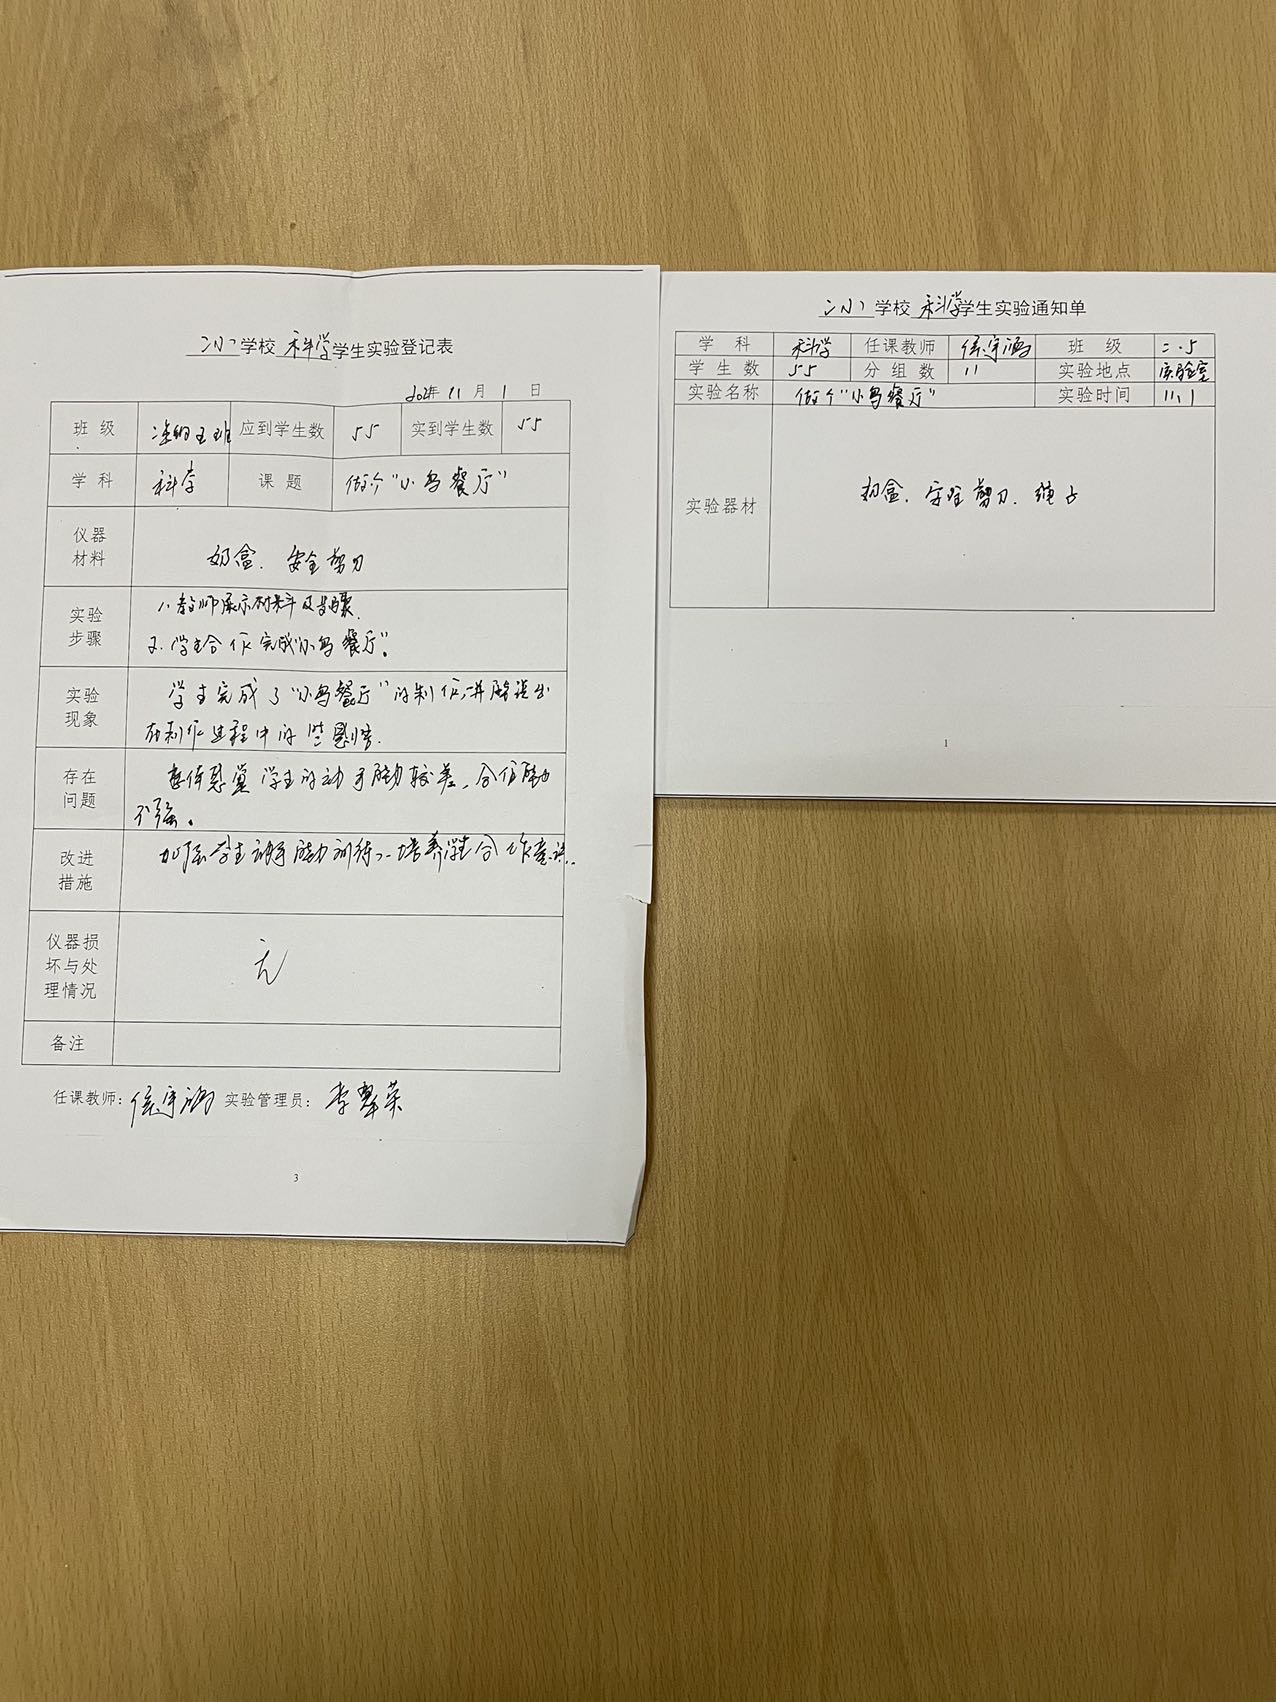 二小学校 科学学生实验登记表
年 11 月 1 日
班级 应到学生数 55 实到学生数 55
学科 科学 课题 做个“小鸟餐厅”
仪器材料 奶盒、安全剪刀
实验步骤 1.教师展示材料及步骤.
2.学生合作完成“小鸟餐厅”。
实验现象 学生完成了“小鸟餐厅”的制作,并能说出
在制作过程中的一些感悟.
存在问题 学生的动手能力较差、合作能力
不强。
改进措施 加强学生动手能力训练、培养学生合作意识.
仪器损坏与处理情况 无
备注
任课教师: 侯宇涵 实验管理员: 李翠荣
3
二小学校 科学学生实验通知单
学科 科学 任课教师 侯宇涵 班级 二.5
学生数 55 分组数 11 实验地点 实验室
实验名称 做个“小鸟餐厅” 实验时间 11.1
实验器材 奶盒、安全剪刀、绳子
1